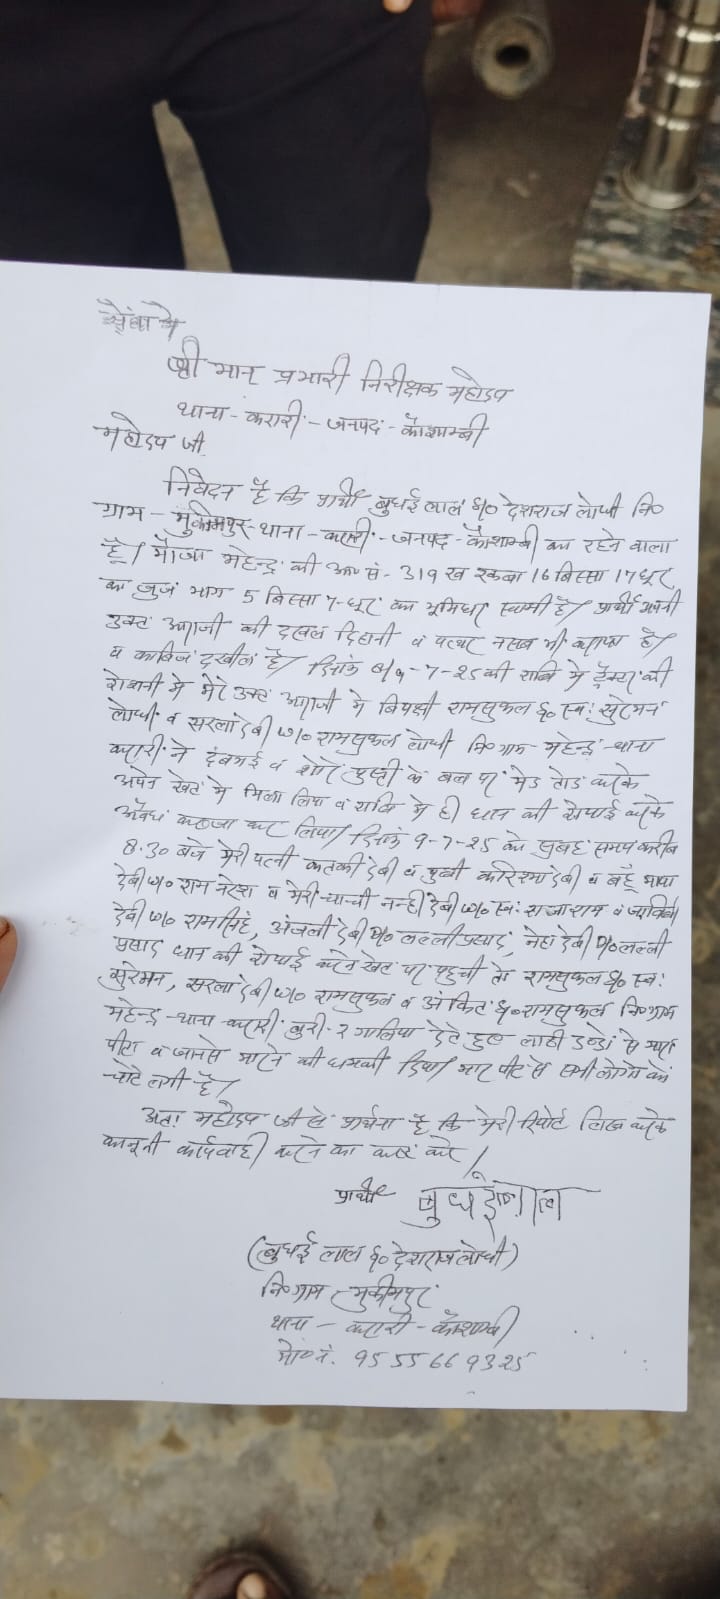 सेवा में
श्री मान् प्रभारी निरीक्षक महोदय
थाना - करारी - जनपद - कौशाम्बी
महोदय जी,
निवेदन है कि प्रार्थी बुधई लाल S/o देशराज लोधी नि०
ग्राम - मुकीमपुर - थाना - करारी - जनपद - कौशाम्बी का रहने वाला
है। मौजा महेन्द्र की आ० सं - 319 ख रकबा 16 बिस्सा 17 धूर
का जुज भाग 5 बिस्सा 7-धूर का भूमिधर स्वामी है। प्रार्थी अपनी
उक्त आराजी की दखल दिहानी व पत्थर नसब भी कराया है।
व काबिज दखील है। दिनांक 8/9-7-25 की रात्रि में ट्रैक्टर की
रोशनी में मेरे उक्त आराजी में विपक्षी रामसुकल S/o स्व: सुरेमन
लोधी व सरला देवी W/o रामसुकल लोधी नि० ग्राम महेन्द्र - थाना
करारी ने दबंगई व के बल पर मेड तोड करके
अपने खेत में मिला लिया व रात्रि में ही धान की रोपाई करके
अवैध कब्जा कर लिया। दिनांक 9-7-25 को सुबह समय करीब
8.30 बजे मेरी पत्नी देवी व पुत्री करिश्मा देवी व बहू माया
देवी W/o राम नरेश व मेरी चाची नन्ही देवी W/o स्व: राजाराम व
देवी W/o रामसिंह, अंजली देवी D/o लल्ली प्रसाद, नेहा देवी D/o लल्ली
प्रसाद धान की रोपाई करने खेत पर पहुची तो रामसुकल S/o स्व:
सुरेमन, सरला देवी W/o रामसुकल व अंकित S/o रामसुकल नि० ग्राम
महेन्द्र - थाना करारी बुरी-२ गालिया देते हुए लाठी डण्डो से मारा
पीटा व जानसे मारने की धमकी दिया। मार पीट से सभी लोगो को
चोटे लगी है।
अतः महोदय जी से प्रार्थना है कि मेरी रिपोर्ट लिख करके
कानूनी कार्यवाही करने का कष्ट करे।
प्रार्थी बुधई लाल
(बुधई लाल S/o देशराज लोधी)
नि० ग्राम - मुकीमपुर
थाना - करारी - कौशाम्बी
मो० नं. 9555669325